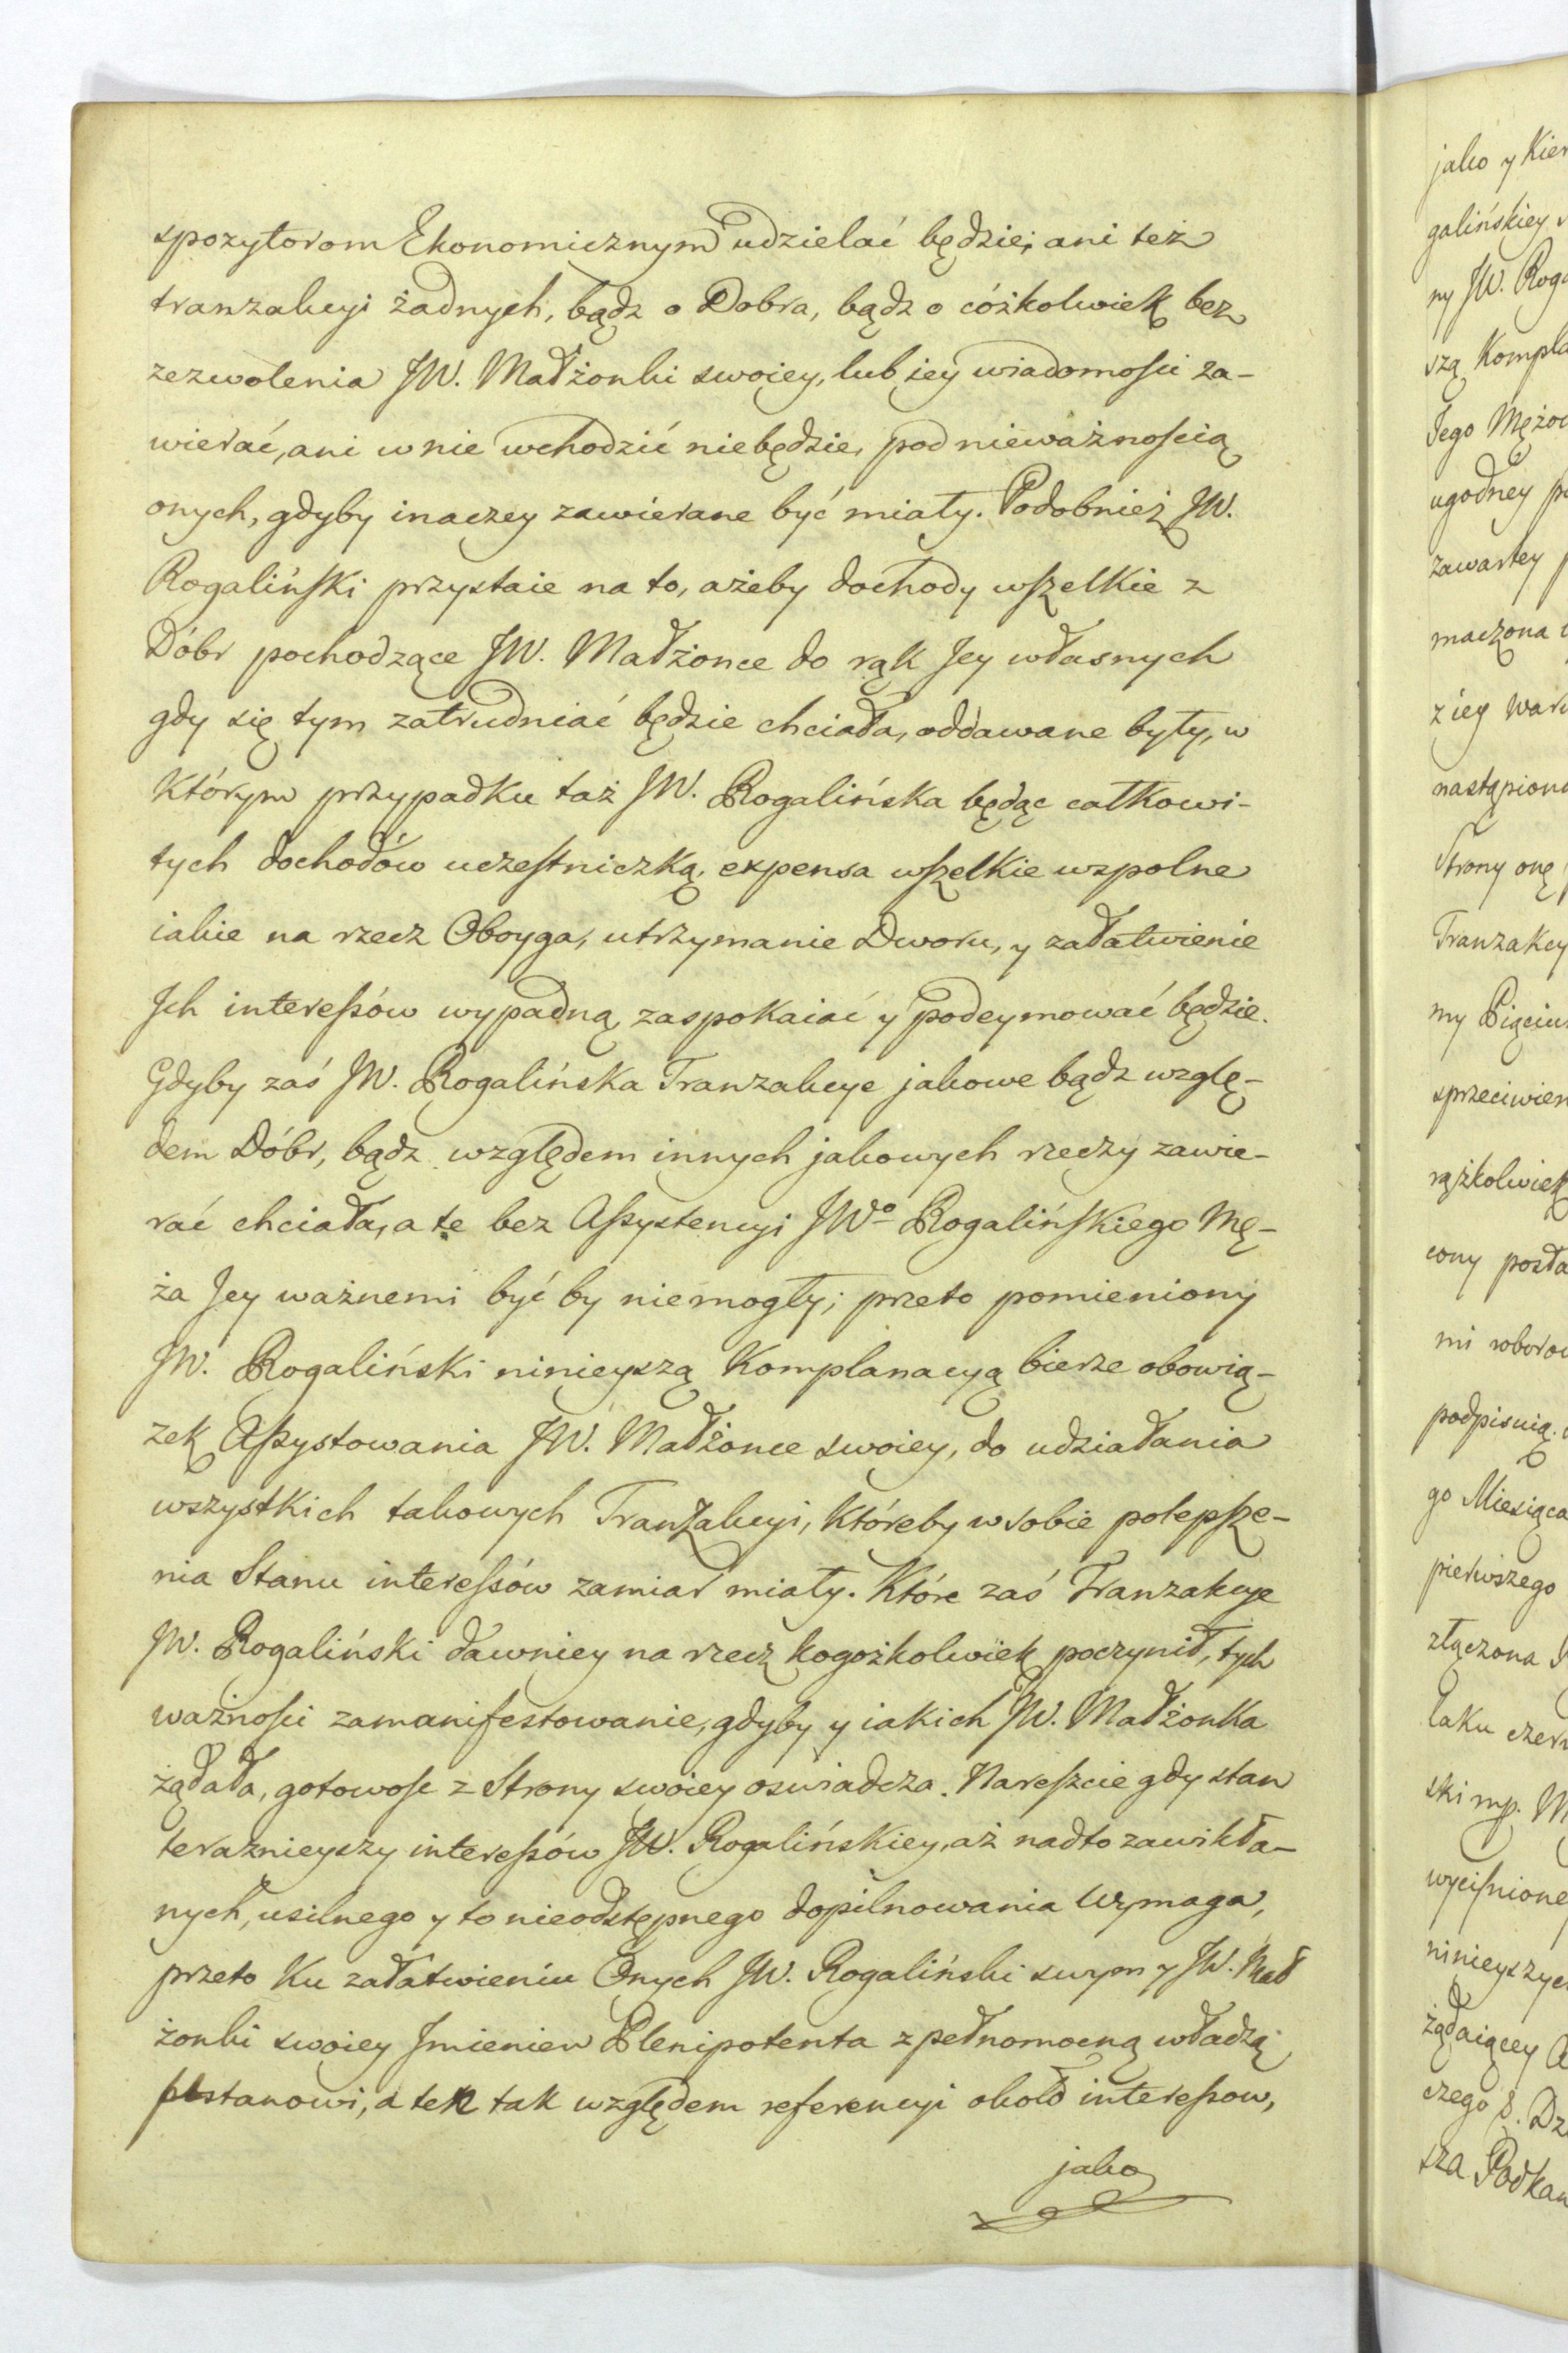 spozytorom Ekonomicznym udzielać będzie; ani też
tranzakcyi żadnych, bądz o Dobra, bądz o cóżkolwiek bez
zezwolenia JW. Małżonki swoiey, lub iey wiadomości za-
wierać, ani w nie wchodzić niebędzie, pod nieważnością
onych, gdyby inaczey zawierane być miały. Podobnież JW.
Rogaliński przystaie na to, ażeby dochody wszelkie z
Dóbr pochodzące JW. Małżonce do rąk Jey własnych
gdy się tym zatrudniać będzie chciała, oddawane były, w
którym przypadku taż JW. Rogalińska będąc całkowi-
tych dochodów uczestniczką, expensa wszelkie wspolne
iakie na rzecz Oboyga, utrzymanie Dworu, y załatwienie
Jch interessów wypadną zaspokaiać y podeymować będzie.
Gdyby zaś JW. Rogalińska Tranzakcye jakowe bądz wzglę-
dem Dóbr, bądz względem innych jakowych rzeczy zawie-
rać chciała, a te bez Assystencyi JWo Rogalińskiego Mę-
ża Jey ważnemi być by niemogły; przeto pomieniony
JW. Rogaliński ninieyszą Komplanacyą bierze obowią-
zek Assystowania JW. Małżonce swoiey, do udziałania
wszystkich takowych Tranzakcyi, któreby w sobie polepsze-
nia Stanu interessów zamiar miały. Które zaś Tranzakcye
JW. Rogaliński dawniey na rzecz kogożkolwiek poczynił, tych
ważności zamanifestowanie, gdyby y iakich JW. Małżonka
żądała, gotowość z Strony swoiey oswiadcza. Nareszcie gdy stan
teraznieyszy interessów JW. Rogalińskiey, aż nadto zawikła-
nych, usilnego y to nieodstępnego dopilnowania wymaga,
przeto ku załatwieniu Onych JW. Rogaliński swym y JW. Mał
żonki swoiey Jmieniem Plenipotenta z pełnomocną władzą
postanowi, a ten tak względem referencyi około interessow,
jako
jako y Kier
galińskiey
ny JW. Roga
szą Kompla
Jego Mężo
ugodney
zawartey
maczona
z iey waru
nastąpiona
Strony onę
Tranzakcy
my Pięciu
sprzeciwien
rążkolwiek
cony posła
mi roboro
podpisuią.
go Miesiąca
pierwszego
złączona
laku czer
ski mp. M
wyciśnione
ninieyszyc
żądaiącey
czego S. Dz
sza Podkan